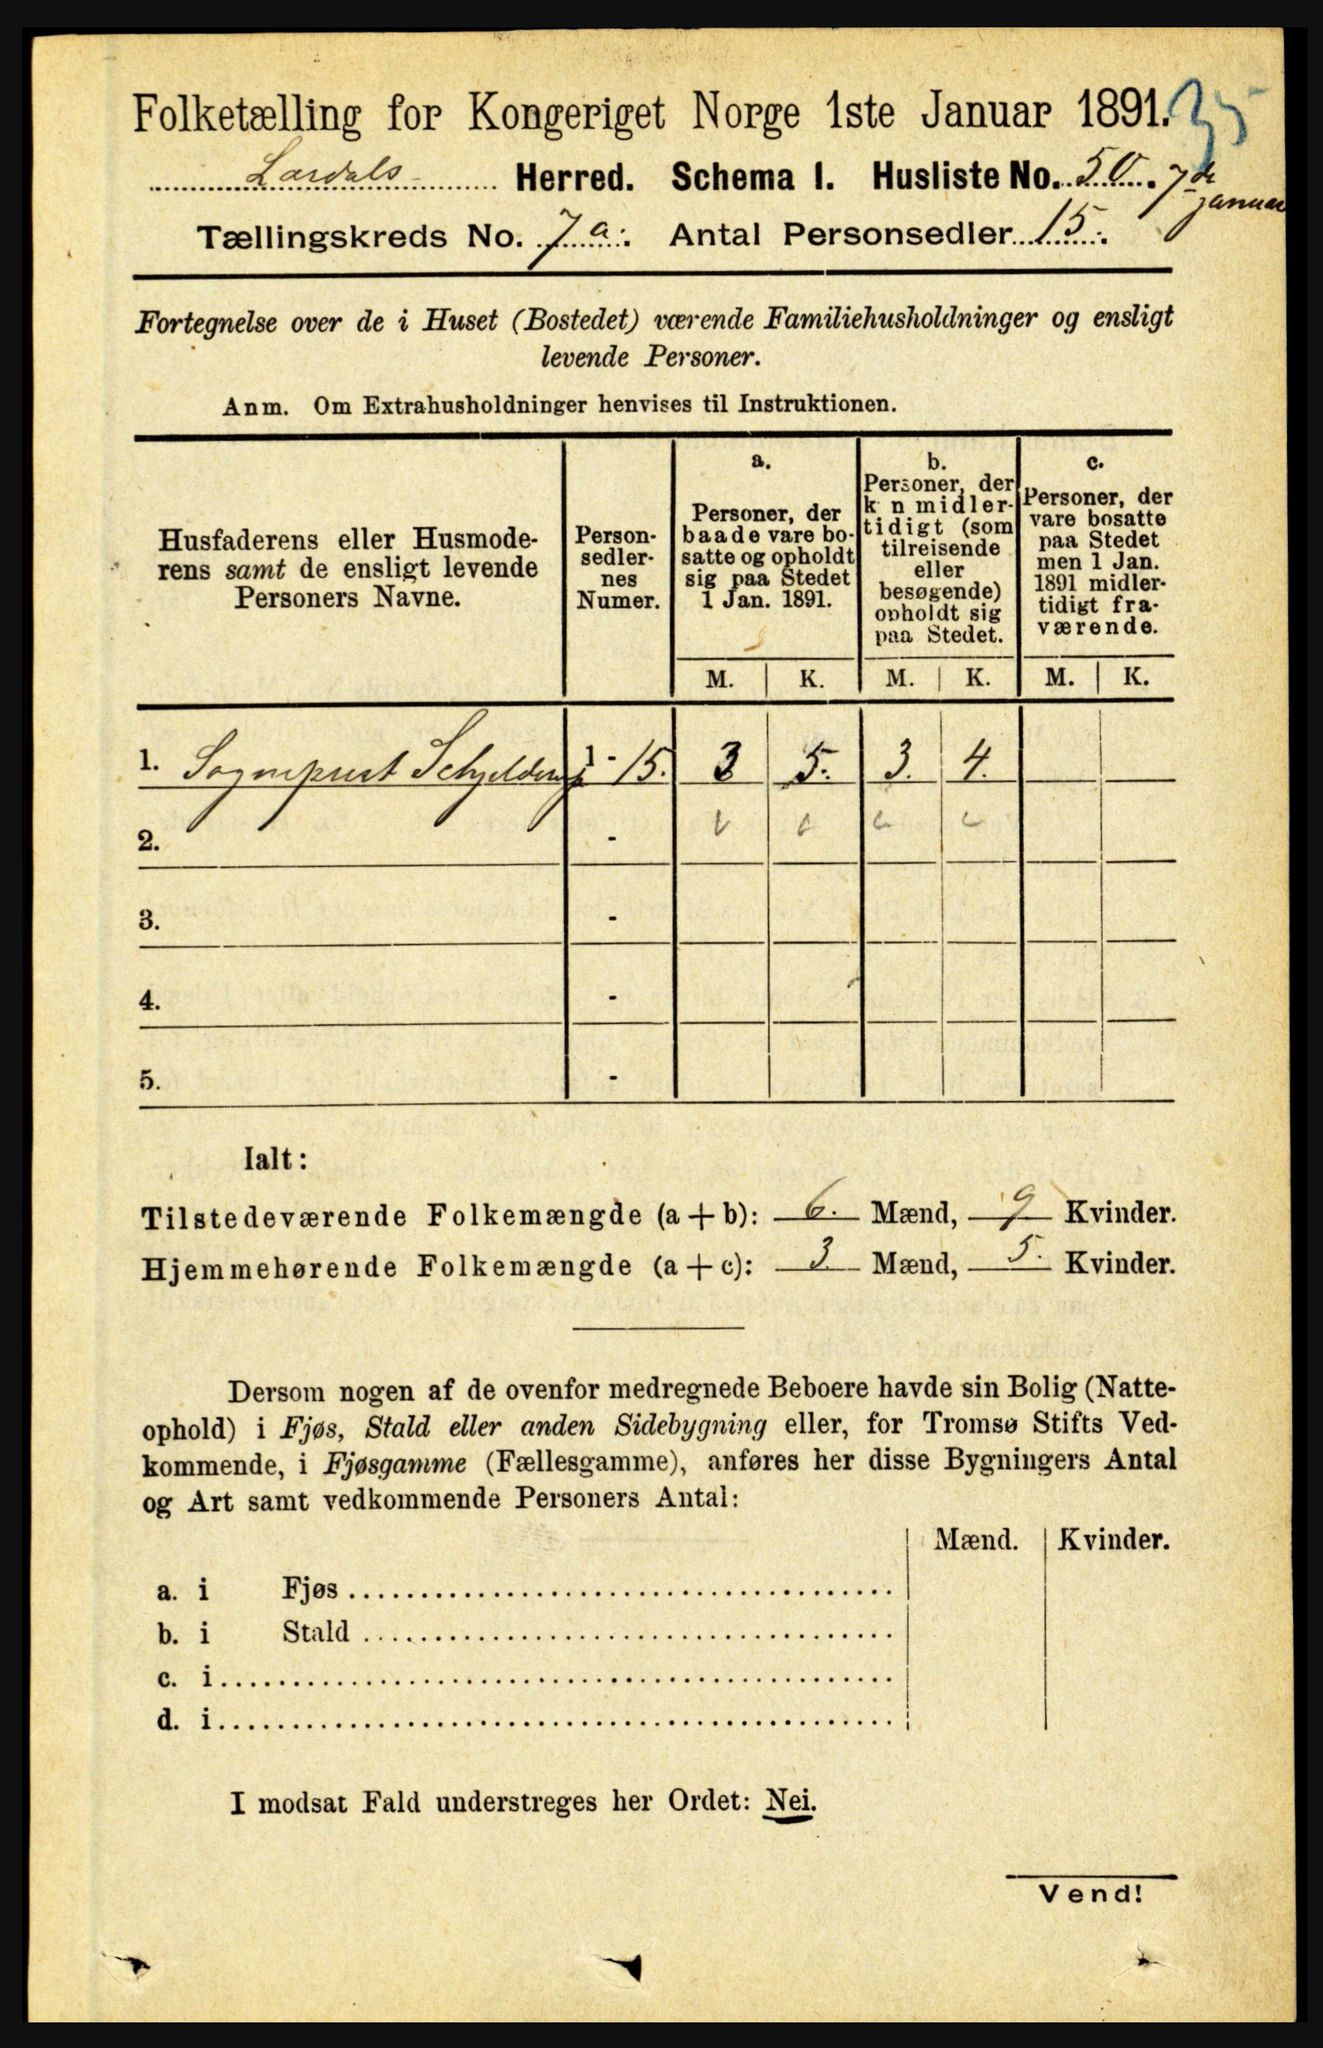 Folketælling for Kongeriget Norge 1ste Januar 1891. 35
Lardals Herred. Schema 1. Husliste No. 50. 7de
Januar
Tællingskreds No. 7a. Antal Personsedler 15.
Fortegnelse over de i Huset (Bostedet) værende Familiehusholdninger og ensligt
levende Personer.
Anm. Om Extrahusholdninger henvises til Instruktionen.
Husfaderens eller Husmode-
rens samt de ensligt levende
Personers Navne.
Person-
sedler-
nes
Numer.
a.
Personer, der
baade vare bo-
satte og opholdt
sig paa Stedet
1 Jan. 1891.
b.
Personer, der
k n midler-
tidigt (som
tilreisende
eller
besøgende)
opholdt sig
paa Stedet.
c.
Personer, der
vare bosatte
paa Stedet
men 1 Jan.
1891 midler-
tidigt fra-
værende.
M. K. M. K. M. K.
1. Sogneprest Schjelderup 1 - 15. 3 5. 3. 4.
2. -
3. -
4. -
5. -
Ialt:
Tilstedeværende Folkemængde (a + b): 6. Mænd, 9 Kvinder.
Hjemmehørende Folkemængde (a + c): 3 Mænd, 5. Kvinder.
Dersom nogen af de ovenfor medregnede Beboere havde sin Bolig (Natte-
ophold) i Fjøs, Stald eller anden Sidebygning eller, for Tromsø Stifts Ved-
kommende, i Fjøsgamme (Fællesgamme), anføres her disse Bygningers Antal
og Art samt vedkommende Personers Antal:
Mænd. Kvinder.
a. i Fjøs
b. i Stald
c. i
d. i
I modsat Fald understreges her Ordet: Nei.
Vend!